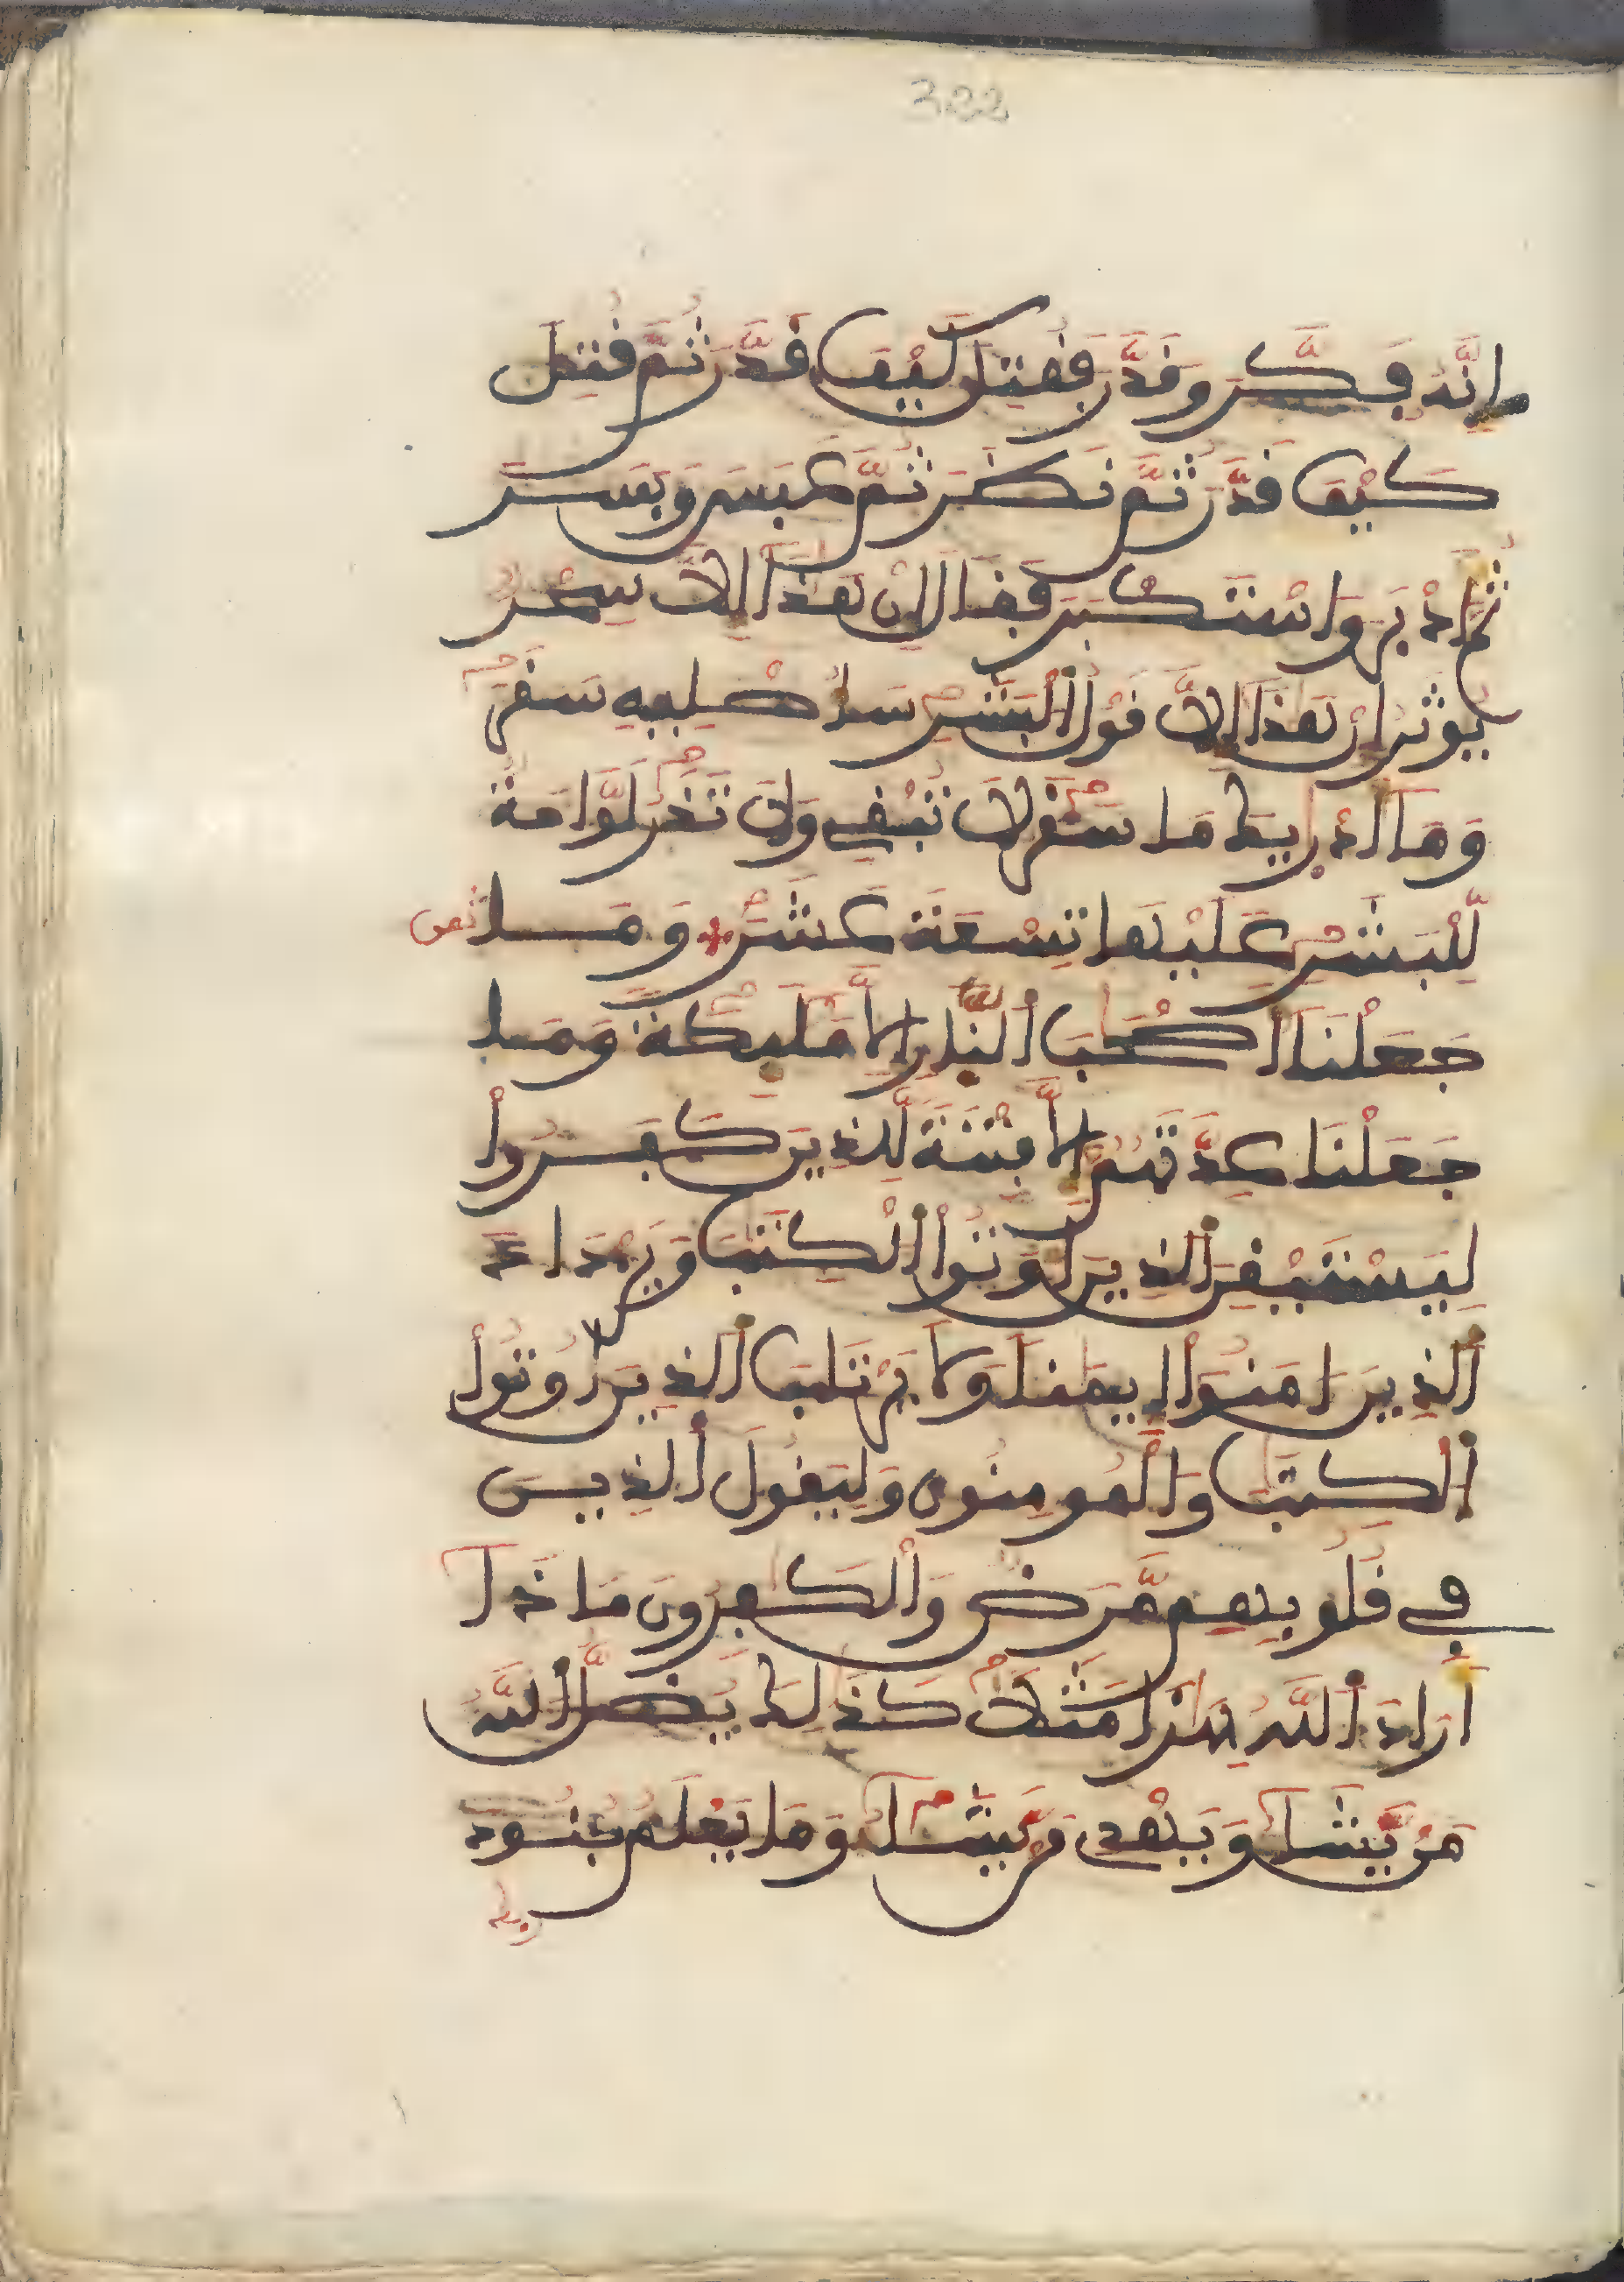 322
إِنَّهُ فَكَّرَ وَقَدَّرَ فَقُتِلَ كَيْفَ قَدَّرَ ثُمَّ قُتِلَ
كَيْفَ قَدَّرَ ثُمَّ نَظَرَ ثُمَّ عَبَسَ وَبَسَرَ
ثُمَّ أَدْبَرَ وَاسْتَكْبَرَ فَقَالَ إِنْ هَٰذَا إِلَّا سِحْرٌ
يُوثَرُ إِنْ هَٰذَا إِلَّا قَوْلُ اُلْبَشَرِ سَأُصْلِيهِ سَقَرَ
وَمَا أَدْرَيٰكَ مَا سَقَرُ لَا تُبْقِي وَلَا تَذَرُ لَوَّاحَةٌ
لِّلْبَشَرِ عَلَيْهَا تِسْعَةَ عَشَرَ وَمَا ثمن
جَعَلْنَا أَصْحَٰبَ اَلنَّارِ إِلَّا مَلَٰئِكَةً وَمَا
جَعَلْنَا عِدَّتَهُمْ إِلَّا فِتْنَةً لِّلَّذِينَ كَفَرُوا
لِيَسْتَيْقِنَ اَلَّذِينَ أُوتُوا اُلْكِتَٰبَ وَيَزْدَادَ
اَلَّذِينَ ءَامَنُوا إِيمَٰنًا وَلَا يَرْتَابَ اَلَّذِينَ أُوتُوا
اُلْكِتَٰبَ وَالْمُومِنُونَ وَلِيَقُولَ اَلَّذِينَ
فِي قُلُوبِهِم مَّرَضٌ وَالْكَٰفِرُونَ مَاذَا
أَرَادَ اَللَّهُ بِهَٰذَا مَثَلًا كَذَٰلِكَ يُضِلُّ اُللَّهُ
مَنْ يَّشَاءُ وَيَهْدِي مَنْ يَّشَاءُ وَمَا يَعْلَمُ جُنُودَ
ربك